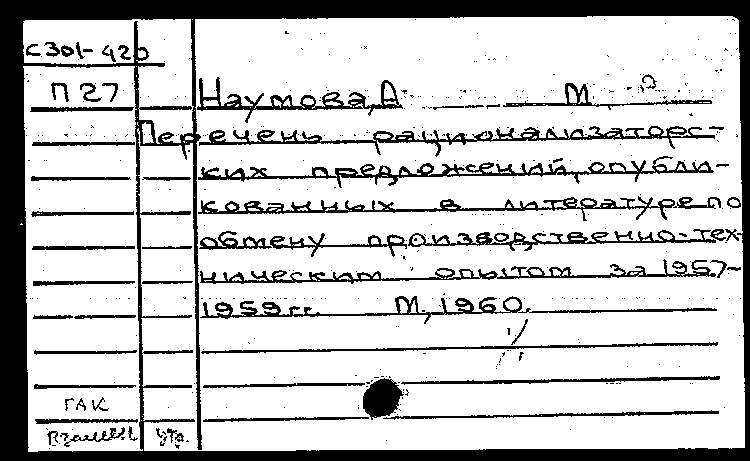 С301-420
П27 Наумова, А М
Перечень рационализаторс-
ких предложений, опубли-
кованных в литературе по
обмену производственно-тех-
ническим опытом за 1957-
1959 гг. М, 1960.
ГАК
Взамен утр.